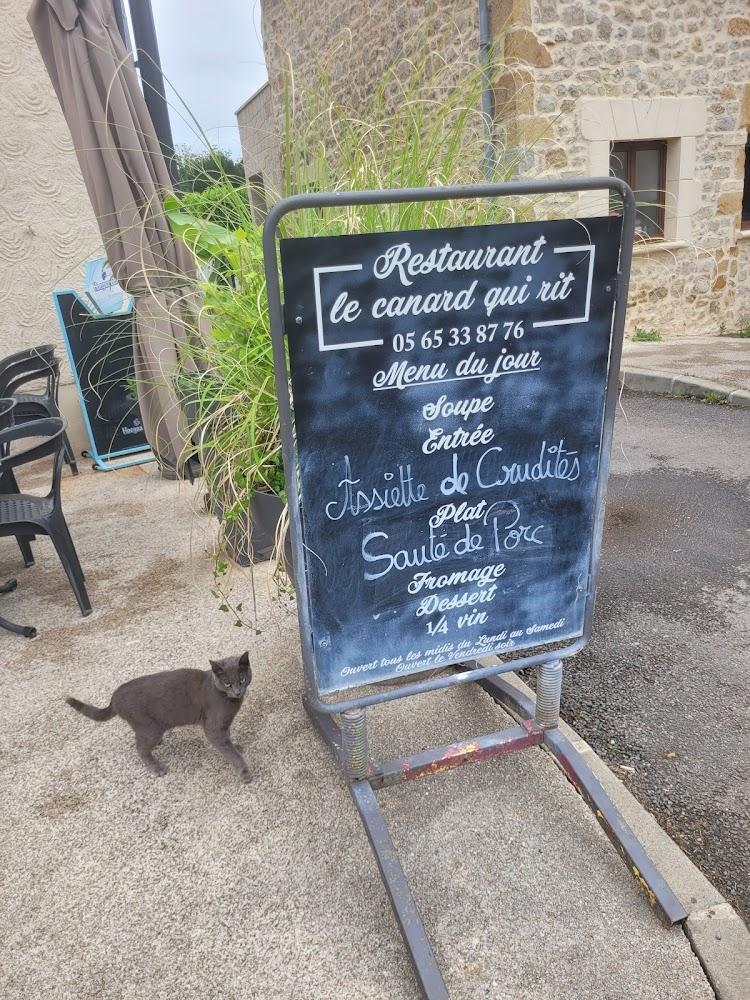 Restaurant
le canard qui rit
05 65 33 87 76
Menu du jour
Soupe
Entrée
Assiette de Crudités
Plat
Sauté de Porc
Fromage
Dessert
1/4 vin
Ouvert tous les midis du Lundi au Samedi
Ouvert le Vendredi soir